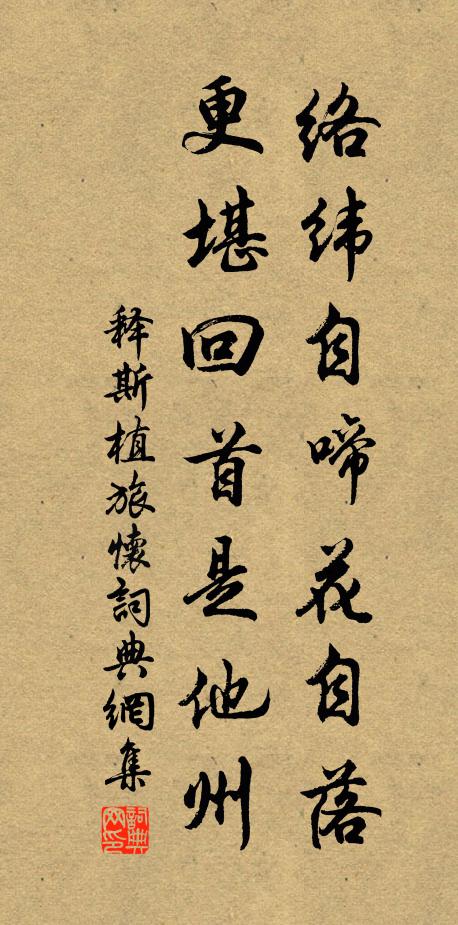 络纬自啼花自落
更堪回首是他州
释斯植旅懷詞典網集
詞典网印